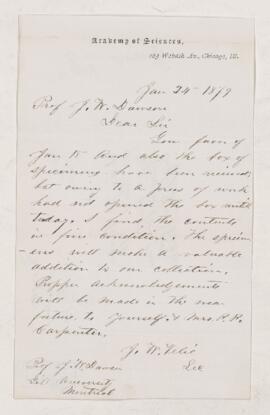 Academy of Sciences,
263 Wabash Av., Chicago, Ill.
Jan 24th 1879
Prof J. W. Dawson
Dear Sir
Your favor of
Jan and also the box of
specimens have been received,
but owing to a press of work
had not opened the box until
today. I find the contents
in fine condition. The specim
ens will make a valuable
addition to our collection.
Propper acknowledgements
will be made in the near
future to yourself & Mrs. P. P.
Carpenter.
J. W. Velie
Sec
Prof J. W. Dawson
Montreal